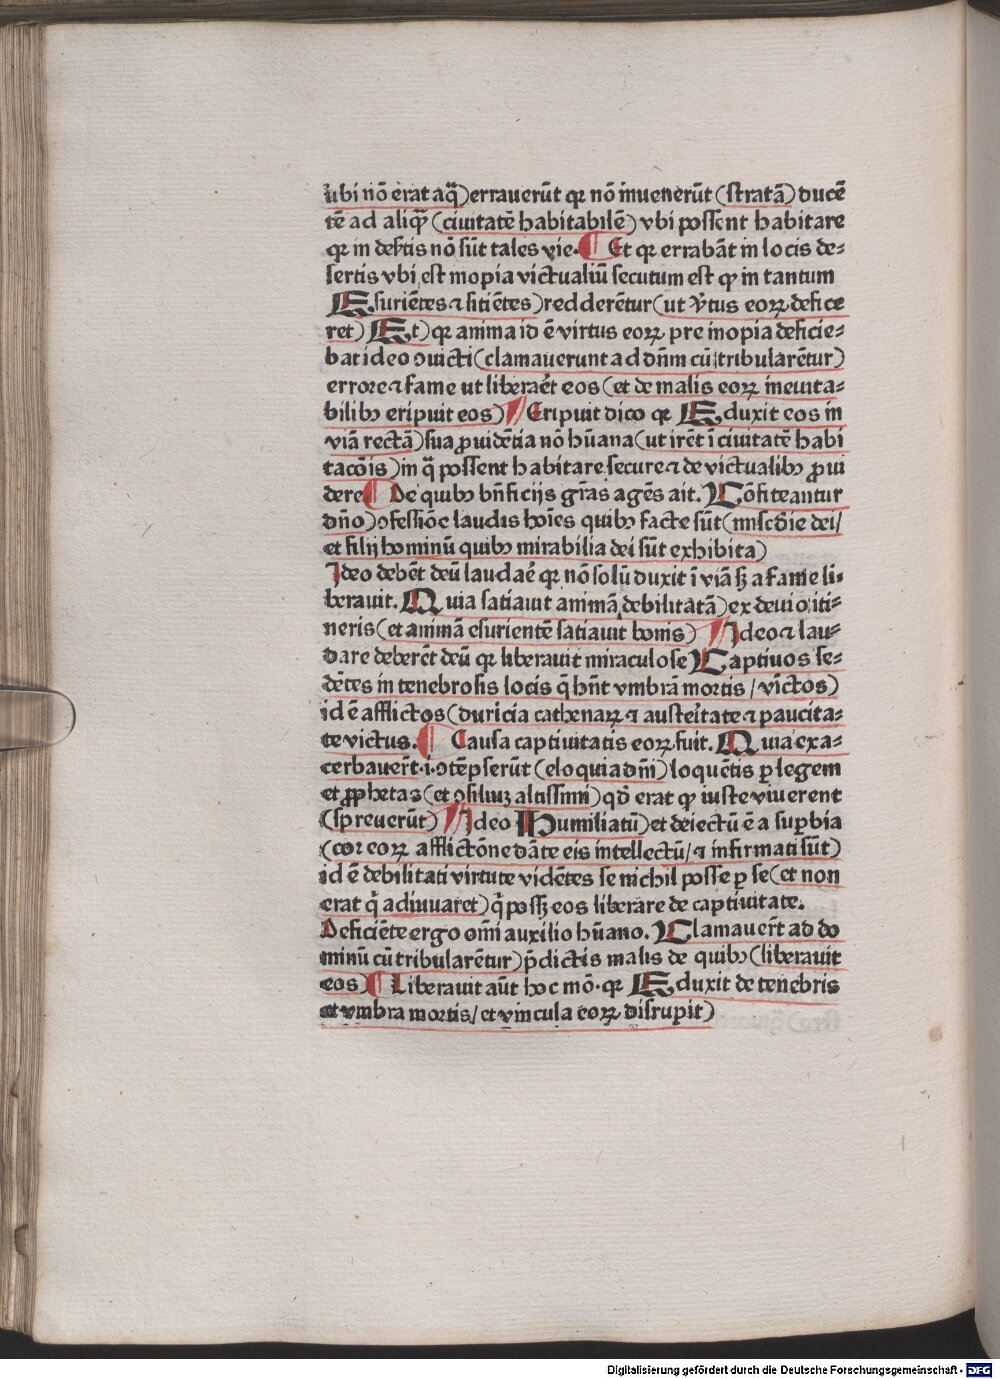 ubi nō erat aq̄) errauerūt qr nō inuenerūt (stratā) ducē
tē ad aliq̄ (ciuitatē habitabilē) vbi possent habitare
qr in deſtis nō sūt tales vie. ¶ Et qr errabāt in locis de-
sertis vbi est inopia victualiū secutum est qp in tantum
Esuriētes ⁊ sitiētes) redderētur (ut v̄tus eoꝝ defice
ret) Et) qr anima id ē virtus eoꝝ pre inopia deficie-
bat ideo ꝯuicti (clamauerunt ad dn̄m cū tribularētur)
errore ⁊ fame ut liberaēt eos (et de malis eoꝝ ineuita-
bilibꝫ eripuit eos) ¶ Eripuit dico qr Eduxit eos in
viā rectā) sua ꝓuidētia nō hūana (ut irēt ī ciuitatē habi
tacōis) in q̄ possent habitare secure ⁊ de victualibꝫ ꝓui
dere ¶ De quibꝫ bn̄ficijs grās agēs ait. Cōfiteantur
dn̄o) ꝯfessiōe laudis hoīes quibꝫ facte sūt (miscd̄ie dei/
et filij hominū quibꝫ mirabilia dei sūt exhibita)
Ideo debēt deū laudaē qr nō solū duxit ī viā sꝫ a fame li-
berauit. Quia satiauit animā debilitatā) ex deuio iti-
neris (et animā esurientē satiauit bonis) ¶ Ideo ⁊ lau-
dare deberēt deū qr liberauit miraculose Captiuos se-
dētes in tenebrosis locis q̄ hn̄t vmbrā mortis / vīctos)
id ē afflictos (duricia cathenaꝝ ⁊ austeītate ⁊ paucita-
te victus. ¶ Causa captiuitatis eoꝝ fuit. Quia exa-
cerbauer̄t .i. ꝯtēpserūt (eloquia dn̄i) loquētis ꝑ legem
et ꝓphetas (et ꝯsiliuꝫ altissimi) qd̄ erat qp iuste viuerent
(spreuerūt) ¶ Ideo Humiliatū) et deiectū ē a suꝑbia
(cor eoꝝ afflictōne dāte eis intellectū / ⁊ infirmati sūt)
id ē debilitati virtute vidētes se nichil posse ꝑ se (et non
erat q̄ adiuuaret) q̄ possꝫ eos liberare de captiuitate.
Deficiēte ergo om̄i auxilio hūano. Clamauer̄t ad do
minū cū tribularētur) p̄dictis malis de quibꝫ (liberauit
eos) ¶ Liberauit aūt hoc mō. qr Eduxit de tenebris
et vmbra mortis / et vincula eoꝝ disrupit)
Digitalisierung gefördert durch die Deutsche Forschungsgemeinschaft - DFG